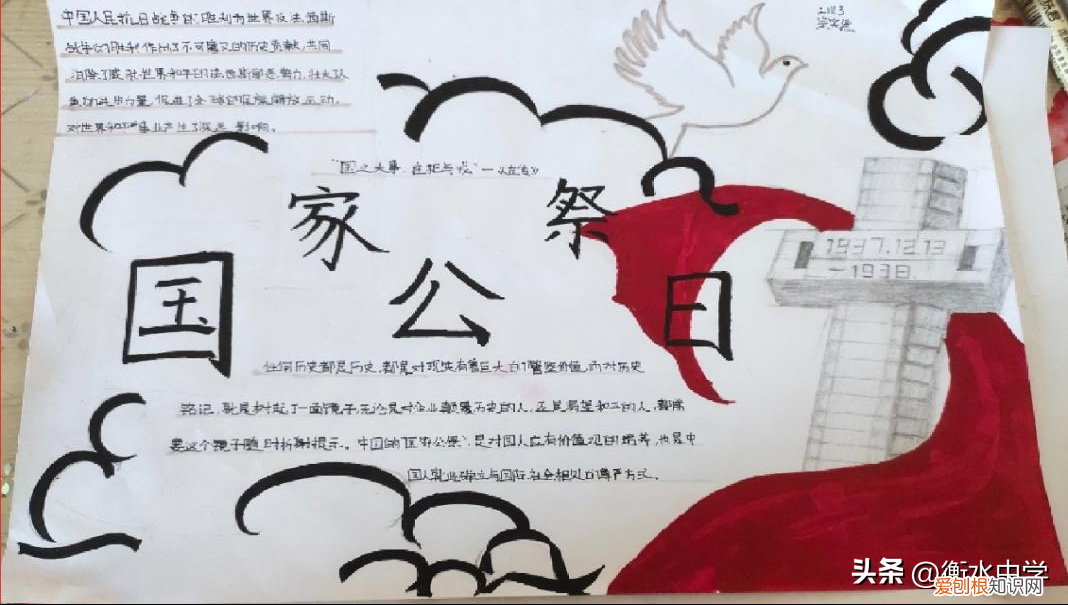 中国人民抗日战争的胜利为世界反法西斯
战争的胜利作出了不可磨灭的历史贡献,共同
消除了威胁世界和平的法西斯邪恶势力,壮大了
进步力量,促进了全球的民族解放运动,
对世界和平事业产生了深远影响。
2103
“国之大事,在祀与戎”—《左传》
家 祭
国 公 日
1937.12.13
-1938.
任何历史都是历史,都是对现实有着巨大的警鉴价值,而对历史
铭记,就是树起了一面镜子,无论是对企业颠覆历史的人,还是希望和平的人,都需
要这个镜子随时折射提示。中国的“国家公祭”,是对国人应有价值观的培养,也是中
国人就此确立与国际社会相处的尊严方式。
头条 @衡水中学
爱刨根知识网